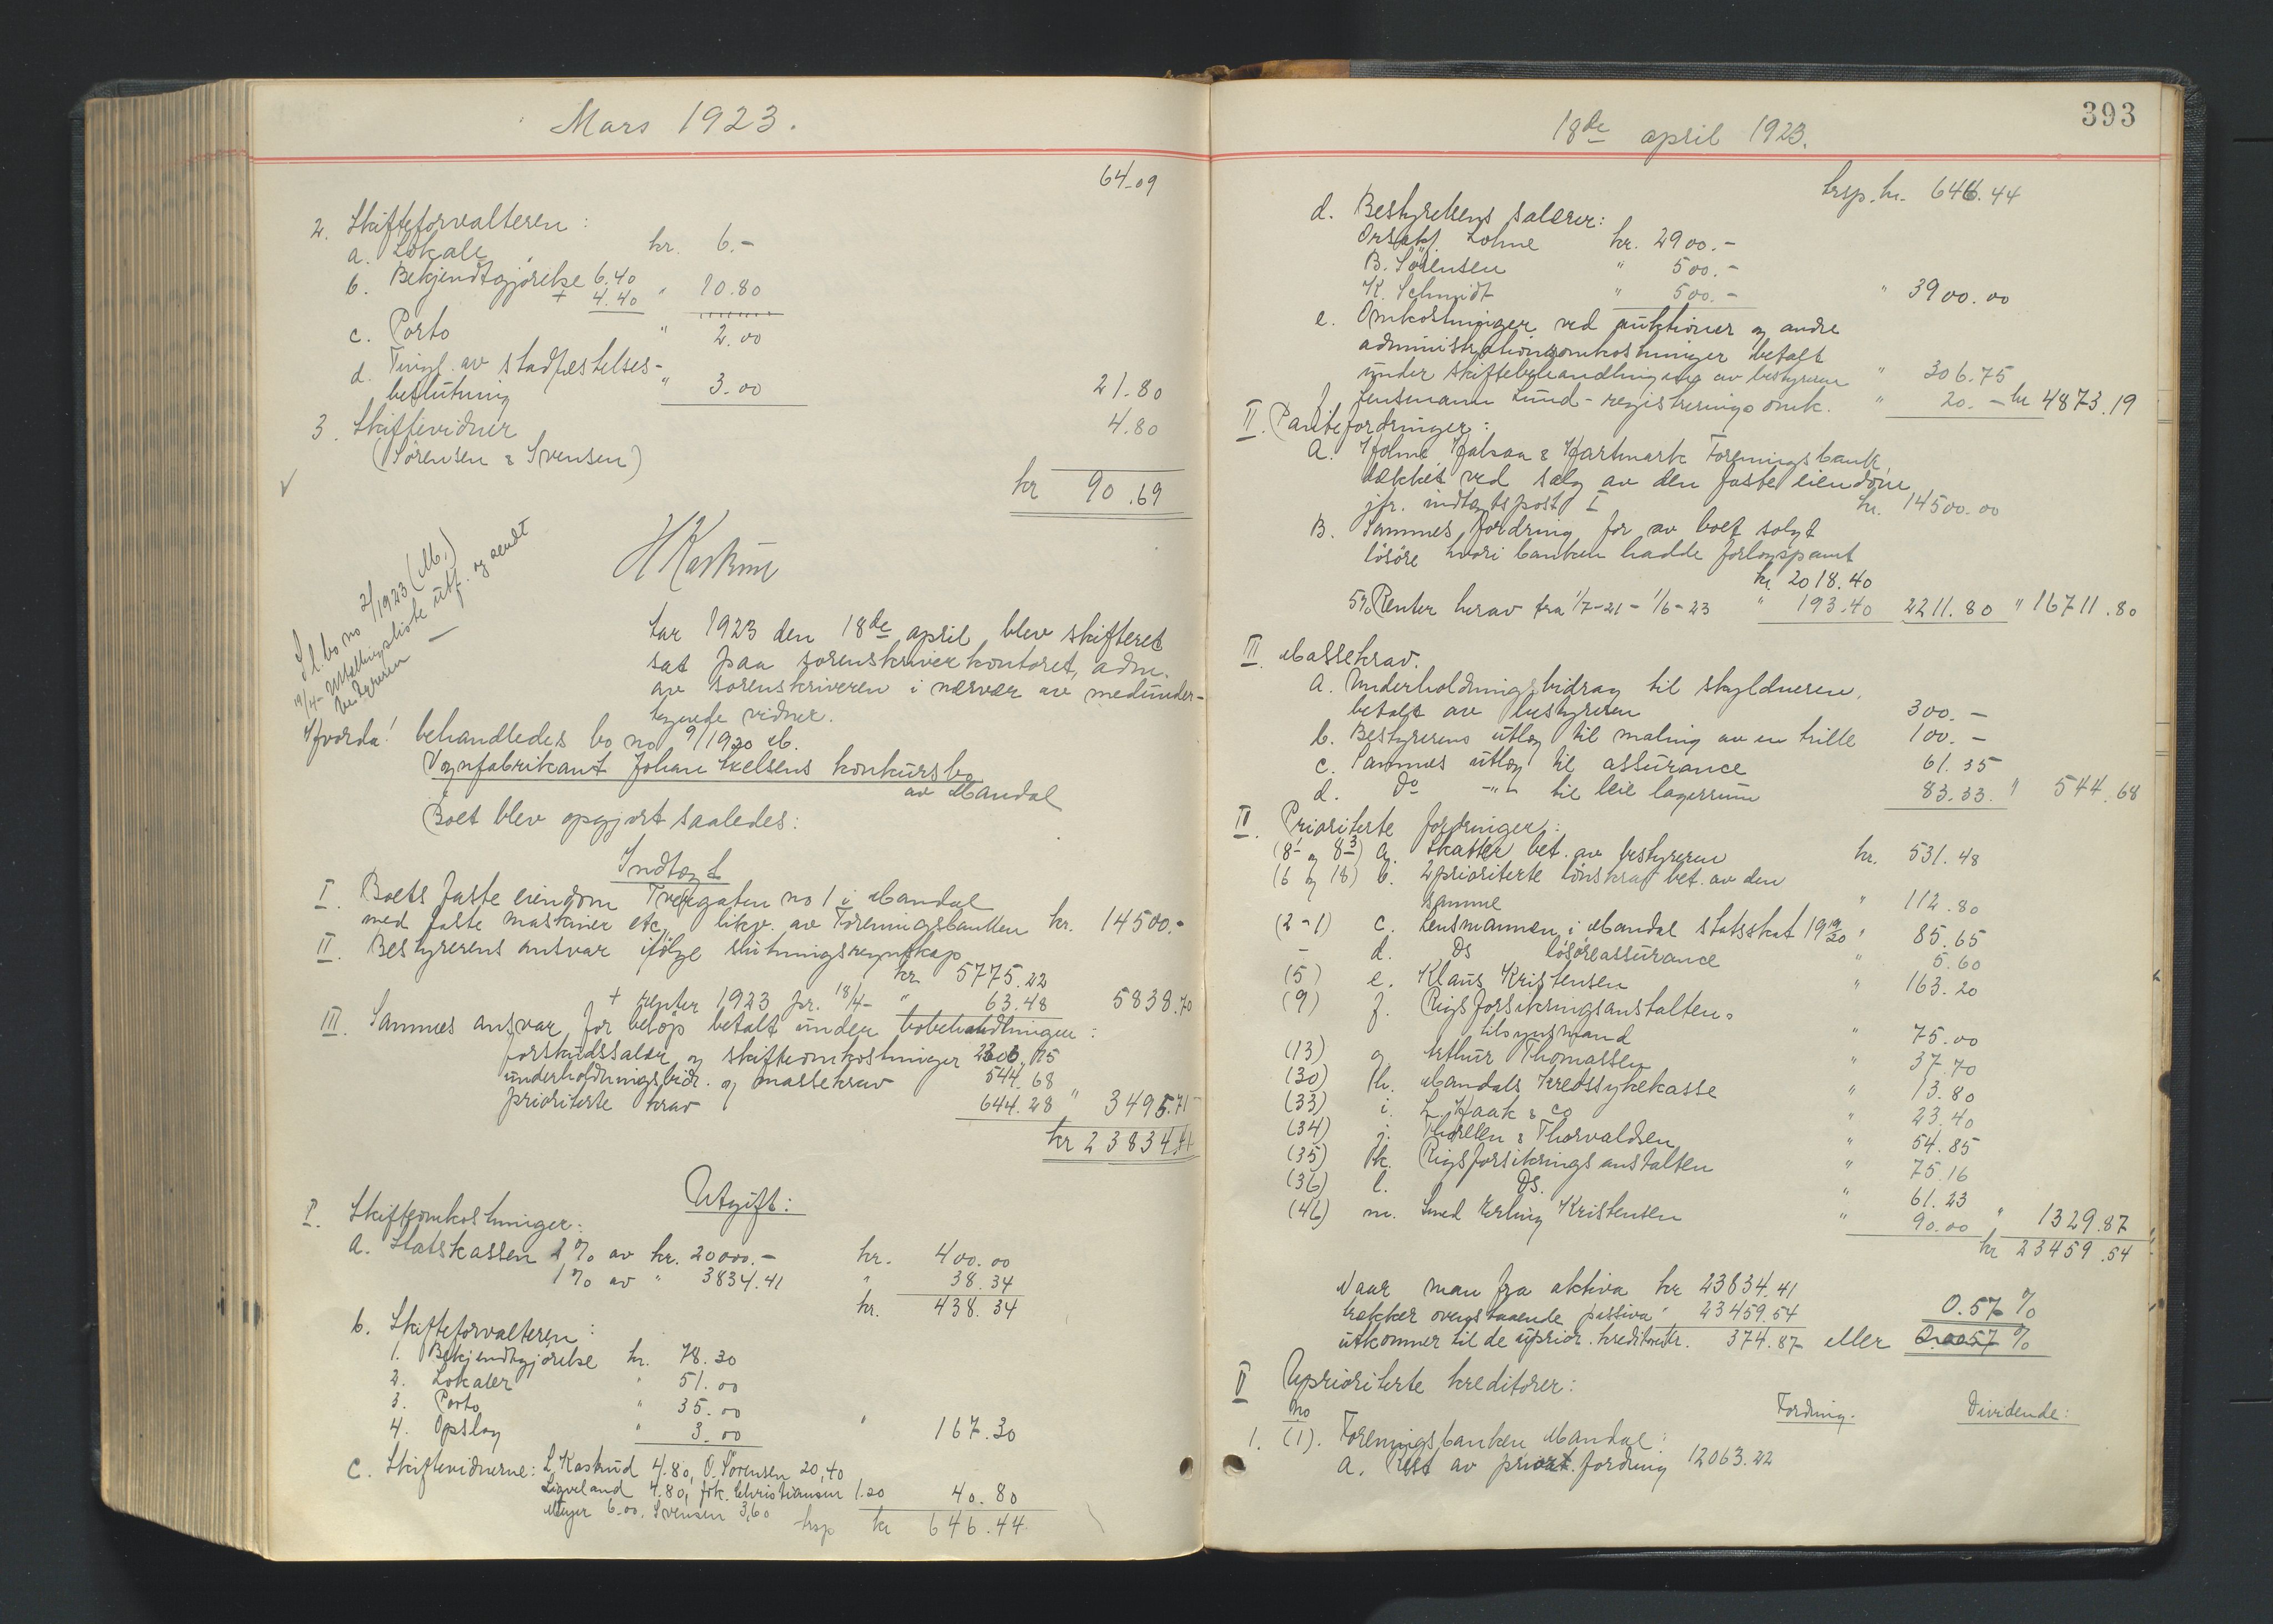 Mars 1923.
64.09
2. Skifteforvalteren:
a. Lokale kr. 6.-
b. Bekjendtgjørelse 6.40
+ 4.40 " 10.80
c. Porto " 2.00
d. Tingl. av stadfæstelses-
beslutning " 3.00 21.80
3. Skiftevidner 4.80
(Sørensen & Svensen)
kr 90.69
Sl. bo no 2/1923 (M.)
19/4- Utællingsliste utf. og sendt
bestyreren —
Aar 1923 den 18de april blev skifteret
sat paa sorenskriverkontoret, adm.
av sorenskriveren i nærvær av medunder-
tegnede vidner.
Hvorda! behandledes bo no 9/1920 M.
Vognfabrikant Johan Axelsens konkursbo
av Mandal
Boet blev opgjort saaledes:
Indtægt
I. Boets faste eiendom Tvergaten no 1 i Mandal
med faste maskiner etc, likv. av Foreningsbanken kr. 14500.-
II. Bestyrerens ansvar ifølge slutningsregnskap
kr. 5775.22
+ renter 1923 pr. 18/4- " 63.48 5838.70
III. Sammes ansvar for beløp betalt under bobehandlingen:
forskudssalær og skifteomkostninger 2306.75
underholdningsbidr. og massekrav 544.68
prioriterte krav 644.28 " 3495.71
kr 23834.41
Utgift:
I. Skifteomkostninger:
a. Statskassen 2% av kr. 20000.- kr. 400.00
1% av " 3834.41 " 38.34
kr. 438.34
b. Skifteforvalteren:
1. Bekjendtgjørelse kr. 78.30
2. Lokaler " 51.00
3. Porto " 35.00
4. Opslag " 3.00 " 167.30
c. Skiftevidnerne: L. Kaskrud 4.80, O. Sørensen 20,40
Ligveland 4.80, frk. Christiansen 1.20 40.80
Meyer 6.00, Svensen 3,60 trsp kr 646.44
393
18de april 1923.
trsp. kr. 646.44
d. Bestyrelsens salærer:
Orsakf. Lohne kr. 2900.-
B. Sørensen " 500.-
K. Schmidt " 500.- " 3900.00
e. Omkostninger ved auktioner og andre
administrationsomkostninger betalt
under skiftebehandlingen av bestyreren " 306.75
f. Lensmann Lund - registreringsomk. " 20.- kr 4873.19
II. Pantefordringer:
A. Holme Halsaa & Hartmark Foreningsbank,
dækket ved salg av den faste eiendom,
jfr. indtægtspost I kr. 14500.00
B. Sammes fordring for av boet solgt
løsøre hvori banken hadde forlagspant
kr 2018.40
5% Renter herav fra 1/7-21 - 1/6-23 " 193.40 2211.80 " 16711.80
III. Massekrav.
a. Underholdningsbidrag til skyldneren,
betalt av bestyreren 300.-
b. Bestyrerens utlæg til maling av en trille 100.-
c. Sammes utlæg til assurance 61.35
d. Do -"- til leie lagerrum 83.33. " 544.68
IV. Prioriterte fordringer:
(8-1 og 8-3) a. Skatter bet. av bestyreren kr. 531.48
(6 og 18) b. 2 prioriterte lønskrav bet. av den
samme " 112.80
(2-1) c. Lensmannen i Mandal statsskat 1919/20 " 85.65
- d. Ds løsøreassurance " 5.60
(5) e. Klaus Kristensen " 163.20
(9) f. Rigsforsikringsanstaltens
tilsynsmand " 75.00
(13) g. Arthur Thomassen " 37.70
(30) h. Mandals Kredssykekasse " 13.80
(33) i. L. Haak & Co " 23.40
(34) j. Thorsen & Thorvaldsen " 54.85
(35) k. Rigsforsikringsanstalten " 75.16
(36) l. Ds. " 61.23
(46) m. Smed Erling Kristensen " 90.00 " 1329.87
kr 23459.54
Naar man fra aktiva kr 23834.41
trækker ovenstaaende passiva " 23459.54 0.57 %
utkommer til de uprior. kreditorer kr. 374.87 eller 0.0057 %
V Uprioriterte kreditorer:
no Fordring. Dividende:
1. (1). Foreningsbanken Mandal:
a. Rest av priort. fordring 12063.22